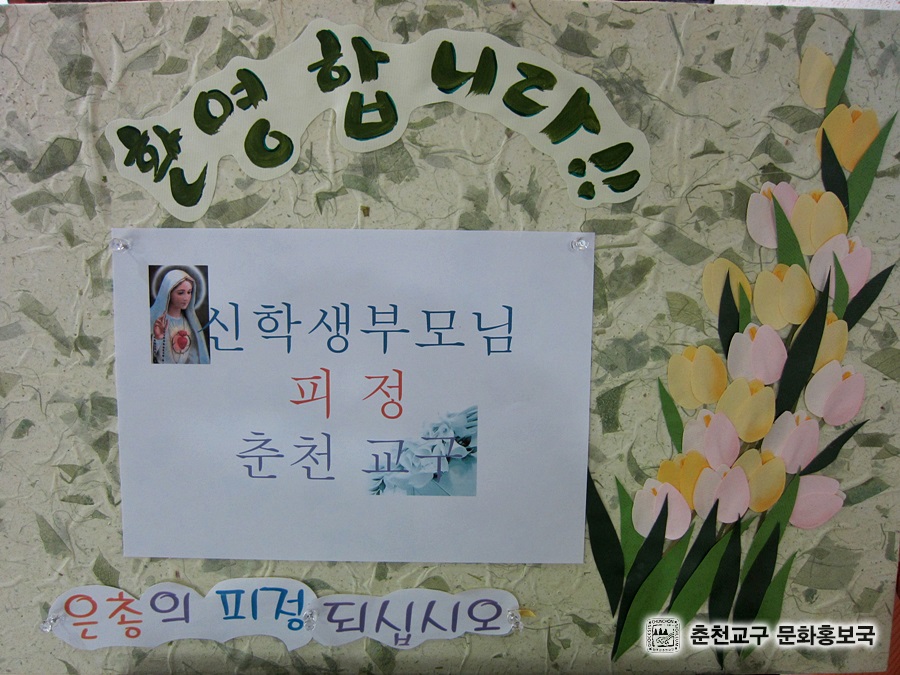 환영합니다!!
신학생부모님
피정
춘천 교구
은총의 피정 되십시오
춘천교구 문화홍보국